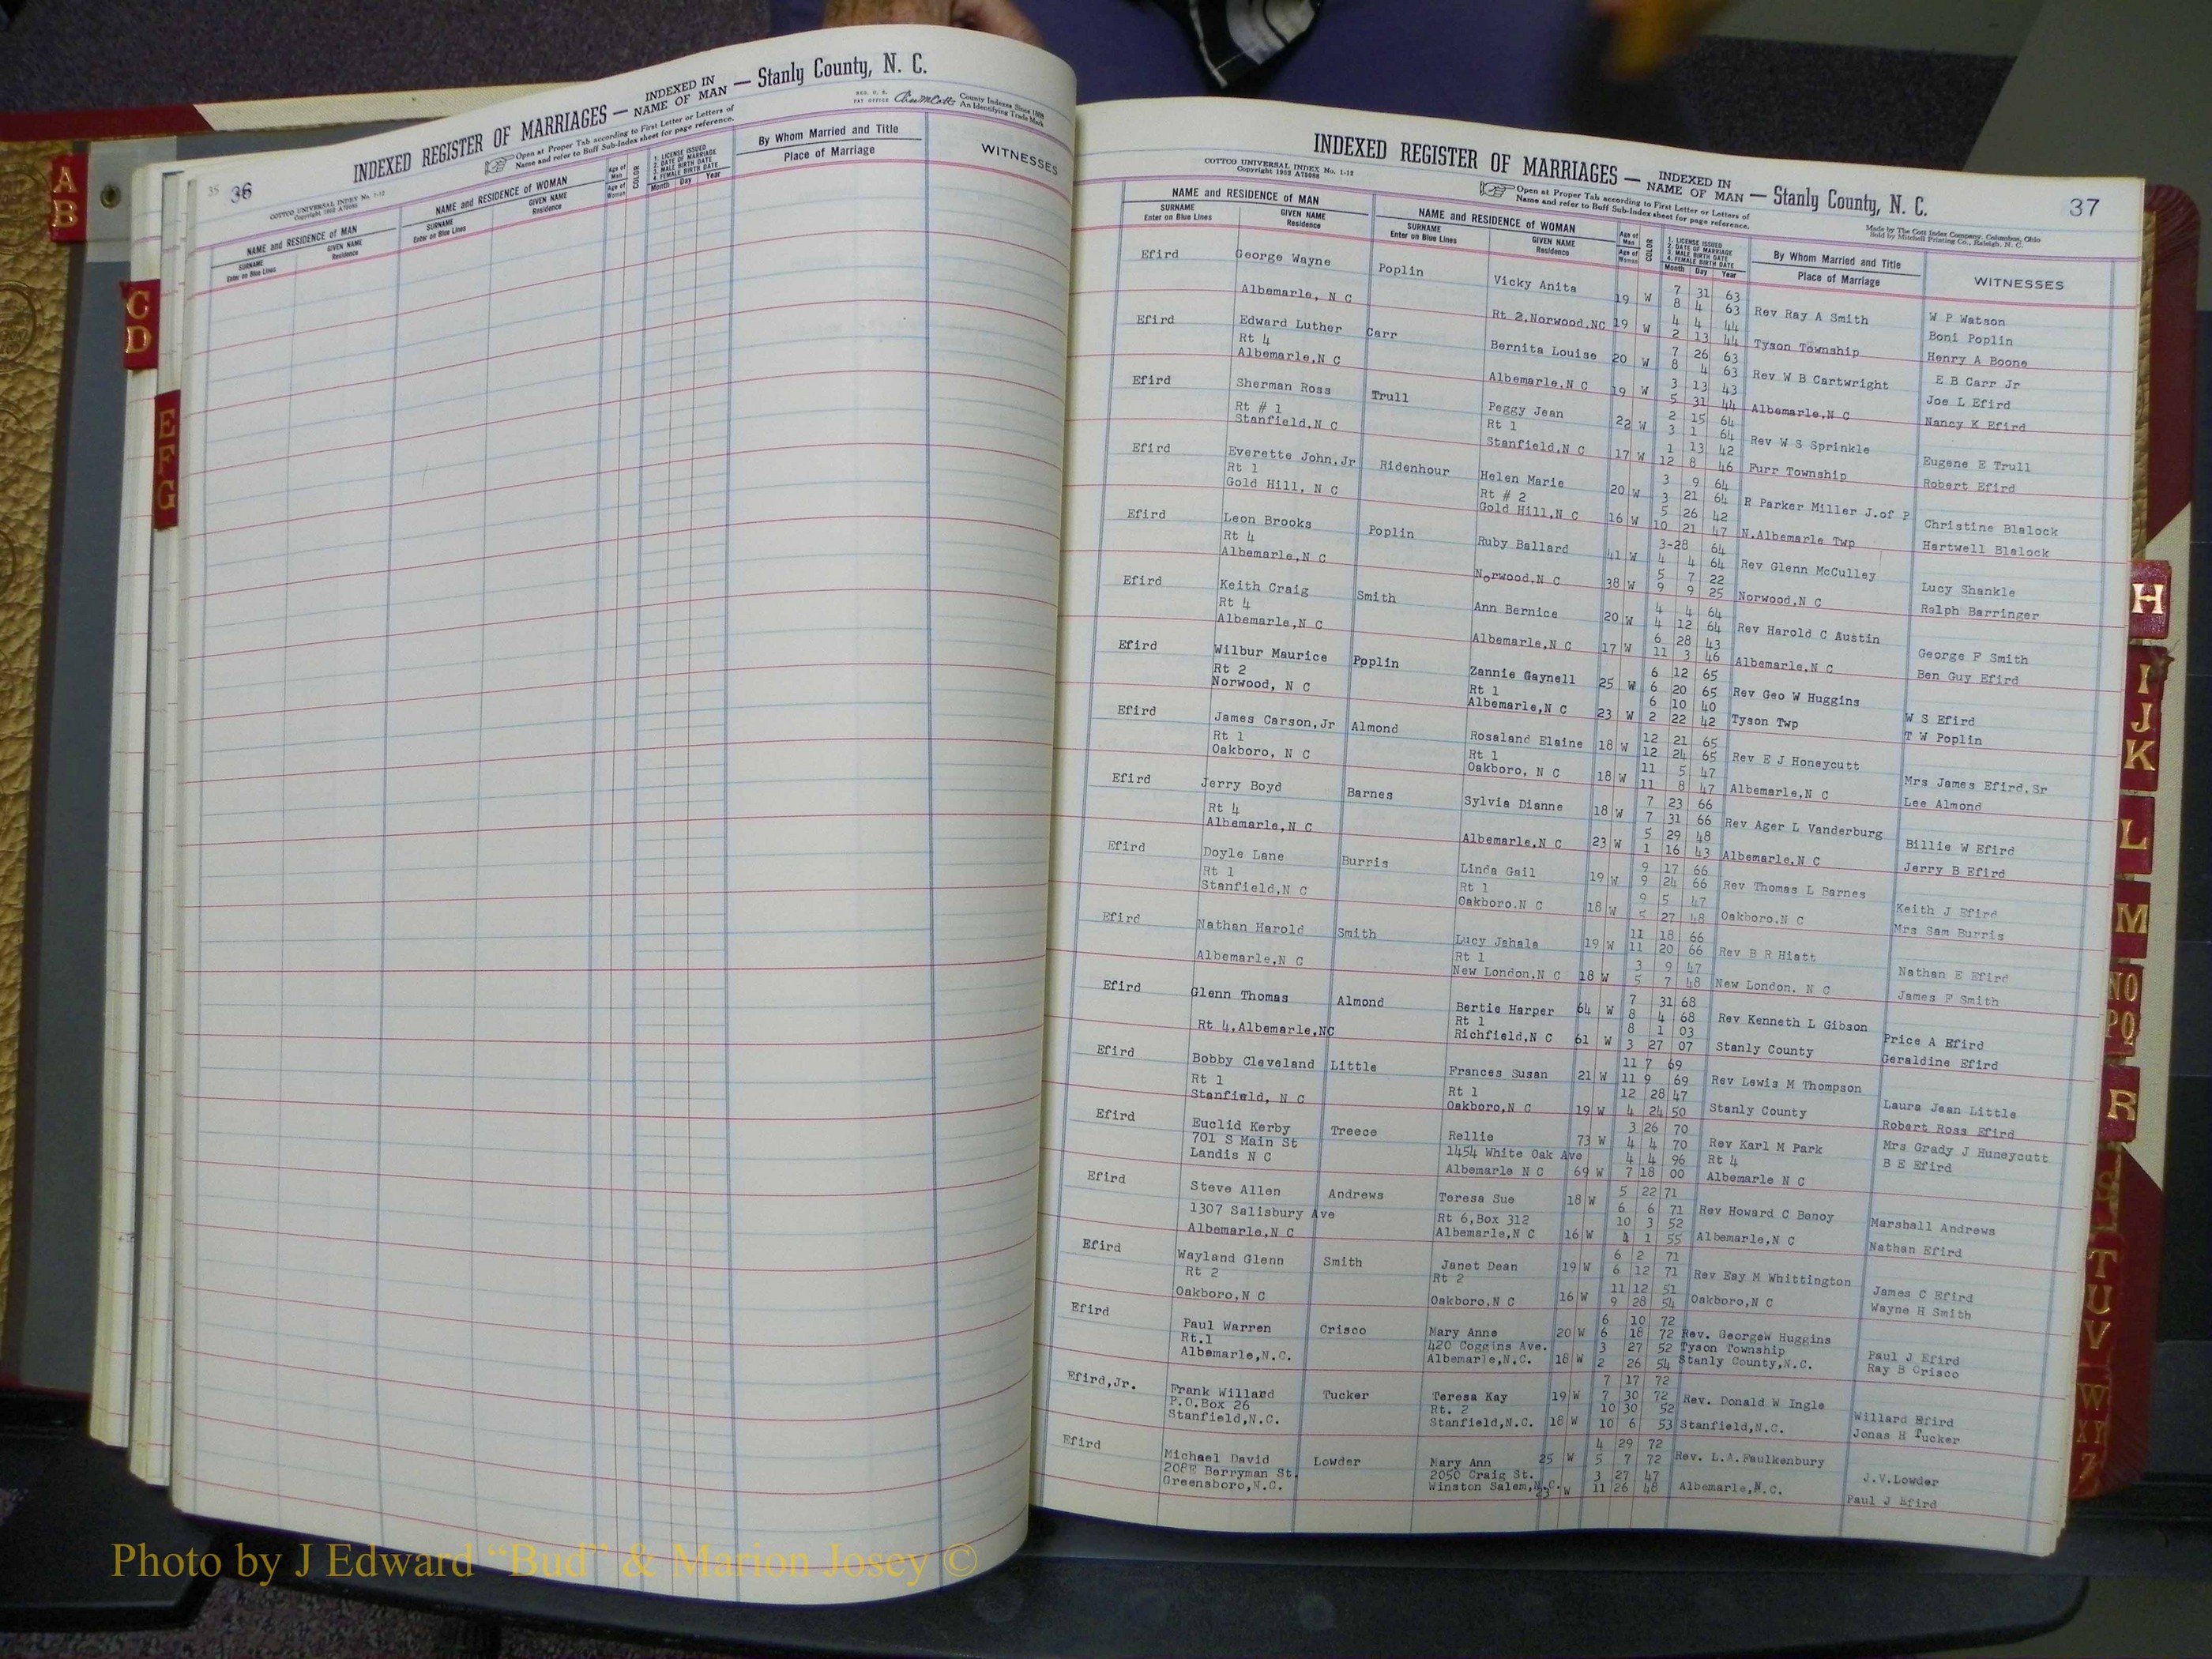 35 36
INDEXED REGISTER OF MARRIAGES — INDEXED IN NAME OF MAN — Stanly County, N. C.
COTTCO UNIVERSAL INDEX No. 1-12
Open at Proper Tab according to First Letter or Letters of
Name and refer to Buff Sub-Index sheet for page reference.
REG. U. S. PAT OFFICE
County Indexes Since 1888
An Identifying Trade Mark
NAME and RESIDENCE OF MAN
SURNAME
Enter on Blue Lines
GIVEN NAME
Residence
NAME and RESIDENCE of WOMAN
SURNAME
Enter on Blue Lines
GIVEN NAME
Residence
Age of Man
Age of Woman
COLOR
1. LICENSE ISSUED
2. DATE OF MARRIAGE
3. MALE BIRTH DATE
4. FEMALE BIRTH DATE
Month Day Year
By Whom Married and Title
Place of Marriage
WITNESSES
INDEXED REGISTER OF MARRIAGES — INDEXED IN NAME OF MAN — Stanly County, N. C.
37
COTTCO UNIVERSAL INDEX No. 1-12
Copyright 1952 A75088
Open at Proper Tab according to First Letter or Letters of
Name and refer to Buff Sub-Index sheet for page reference.
Made by The Cott Index Company, Columbus, Ohio
Sold by Mitchell Printing Co., Raleigh, N. C.
NAME and RESIDENCE OF MAN
SURNAME
Enter on Blue Lines
GIVEN NAME
Residence
NAME and RESIDENCE of WOMAN
SURNAME
Enter on Blue Lines
GIVEN NAME
Residence
Age of Man
Age of Woman
COLOR
1. LICENSE ISSUED
2. DATE OF MARRIAGE
3. MALE BIRTH DATE
4. FEMALE BIRTH DATE
Month Day Year
By Whom Married and Title
Place of Marriage
WITNESSES
Efird George Wayne Poplin Vicky Anita 19 W 7 31 63 Rev Ray A Smith W P Watson
8 4 63 Boni Poplin
Albemarle, N C Rt 2,Norwood,NC 19 W 4 4 44 Tyson Township Henry A Boone
2 13 44
Efird Edward Luther Carr Bernita Louise 20 W 7 26 63 Rev W B Cartwright E B Carr Jr
Rt 4 8 4 63 Joe L Efird
Albemarle,N C Albemarle,N C 19 W 3 13 43 Albemarle,N C Nancy K Efird
5 31 44
Efird Sherman Ross Trull Peggy Jean 22 W 2 15 64 Rev W S Sprinkle Eugene E Trull
Rt # 1 Rt 1 3 1 64
Stanfield,N C Stanfield,N C 17 W 1 13 42 Furr Township Robert Efird
12 8 46
Efird Everette John,Jr Ridenhour Helen Marie 20 W 3 9 64 R Parker Miller J.of P Christine Blalock
Rt 1 Rt # 2 3 21 64
Gold Hill, N C Gold Hill,N C 16 W 5 26 42 N.Albemarle Twp Hartwell Blalock
10 21 47
Efird Leon Brooks Poplin Ruby Ballard 41 W 3-28 64 Rev Glenn McCulley Lucy Shankle
Rt 4 4 4 64
Albemarle,N C Norwood,N C 38 W 5 7 22 Norwood,N C Ralph Barringer
9 9 25
Efird Keith Craig Smith Ann Bernice 20 W 4 4 64 Rev Harold C Austin George F Smith
Rt 4 4 12 64
Albemarle,N C Albemarle,N C 17 W 6 28 43 Albemarle,N C Ben Guy Efird
11 3 46
Efird Wilbur Maurice Poplin Zannie Gaynell 25 W 6 12 65 Rev Geo W Huggins W S Efird
Rt 2 Rt 1 6 20 65
Norwood, N C Albemarle,N C 23 W 6 10 40 Tyson Twp T W Poplin
2 22 42
Efird James Carson,Jr Almond Rosaland Elaine 18 W 12 21 65 Rev E J Honeycutt Mrs James Efird,Sr
Rt 1 Rt 1 12 24 65
Oakboro, N C Oakboro, N C 18 W 11 5 47 Albemarle,N C Lee Almond
11 8 47
Efird Jerry Boyd Barnes Sylvia Dianne 18 W 7 23 66 Rev Ager L Vanderburg Billie W Efird
Rt 4 7 31 66
Albemarle,N C Albemarle,N C 23 W 5 29 48 Albemarle,N C Jerry B Efird
1 16 43
Efird Doyle Lane Burris Linda Gail 19 W 9 17 66 Rev Thomas L Barnes Keith J Efird
Rt 1 Rt 1 9 24 66
Stanfield,N C Oakboro.N C 18 W 9 5 47 Oakboro.N C Mrs Sam Burris
5 27 48
Efird Nathan Harold Smith Lucy Jahala 19 W 11 18 66 Rev B R Hiatt Nathan E Efird
Rt 1 11 20 66
Albemarle,N C New London.N C 18 W 3 9 47 New London. N C James F Smith
5 7 48
Efird Glenn Thomas Almond Bertie Harper 64 W 7 31 68 Rev Kenneth L Gibson Price A Efird
Rt 1 8 4 68
Rt 4,Albemarle,NC Richfield,N C 61 W 8 1 03 Stanly County Geraldine Efird
3 27 07
Efird Bobby Cleveland Little Frances Susan 21 W 11 7 69 Rev Lewis M Thompson Laura Jean Little
Rt 1 Rt 1 11 9 69
Stanfield, N C Oakboro,N C 19 W 12 28 47 Stanly County Robert Ross Efird
4 24 50
Efird Euclid Kerby Treece Rellie 73 W 3 26 70 Rev Karl M Park Mrs Grady J Huneycutt
701 S Main St 1454 White Oak Ave 4 4 70 Rt 4 B E Efird
Landis N C Albemarle N C 69 W 4 4 96 Albemarle N C
7 18 00
Efird Steve Allen Andrews Teresa Sue 18 W 5 22 71 Rev Howard C Benoy Marshall Andrews
1307 Salisbury Ave Rt 6,Box 312 6 6 71
Albemarle,N C Albemarle,N C 16 W 10 3 52 Albemarle,N C Nathan Efird
4 1 55
Efird Wayland Glenn Smith Janet Dean 19 W 6 2 71 Rev Eay M Whittington James C Efird
Rt 2 Rt 2 6 12 71
Oakboro,N C Oakboro,N C 16 W 11 12 51 Oakboro,N C Wayne H Smith
9 28 54
Efird Paul Warren Crisco Mary Anne 20 W 6 10 72 Rev. GeorgeW Huggins Paul J Efird
Rt.1 420 Coggins Ave. 6 18 72 Tyson Township
Albemarle,N.C. Albemarle,N.C. 18 W 3 27 52 Stanly County,N.C. Ray B Crisco
2 26 54
Efird,Jr. Frank Willard Tucker Teresa Kay 19 W 7 17 72 Rev. Donald W Ingle Willard Efird
P.O.Box 26 Rt. 2 7 30 72
Stanfield,N.C. Stanfield,N.C. 18 W 10 30 52 Stanfield,N.C. Jonas H Tucker
10 6 53
Efird Michael David Lowder Mary Ann 25 W 4 29 72 Rev. L.A.Faulkenbury J.V.Lowder
208E Berryman St. 2050 Craig St. 5 7 72
Greensboro,N.C. Winston Salem,N.C. 23 W 3 27 47 Albemarle,N.C. Paul J Efird
11 26 48
A
B
C
D
E
F
G
H
I
J
K
L
M
NO
PQ
R
S
T
U
V
W
XY
Z
Photo by J Edward “Bud” & Marion Josey ©